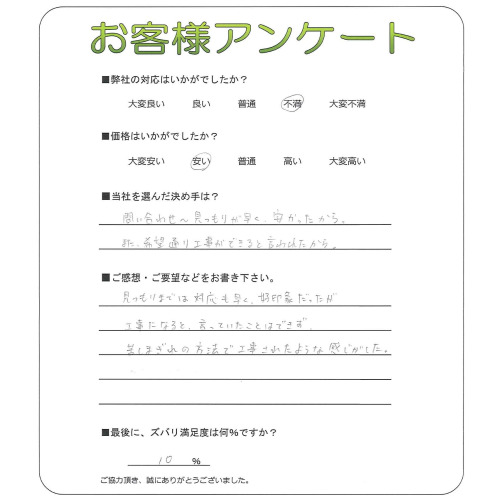 お客様アンケート
■弊社の対応はいかがでしたか？
大変良い 良い 普通 不満 大変不満
■価格はいかがでしたか？
大変安い 安い 普通 高い 大変高い
■当社を選んだ決め手は？
問い合わせ〜見つもりが早く、安かったから。
また、希望通り工事ができると言われたから。
■ご感想・ご要望などをお書き下さい。
見つもりまでは対応も早く、好印象だったが
工事になると、言っていたことはできず、
苦しまぎれの方法で工事されたような感じがした。
■最後に、ズバリ満足度は何%ですか？
10 %
ご協力頂き、誠にありがとうございました。